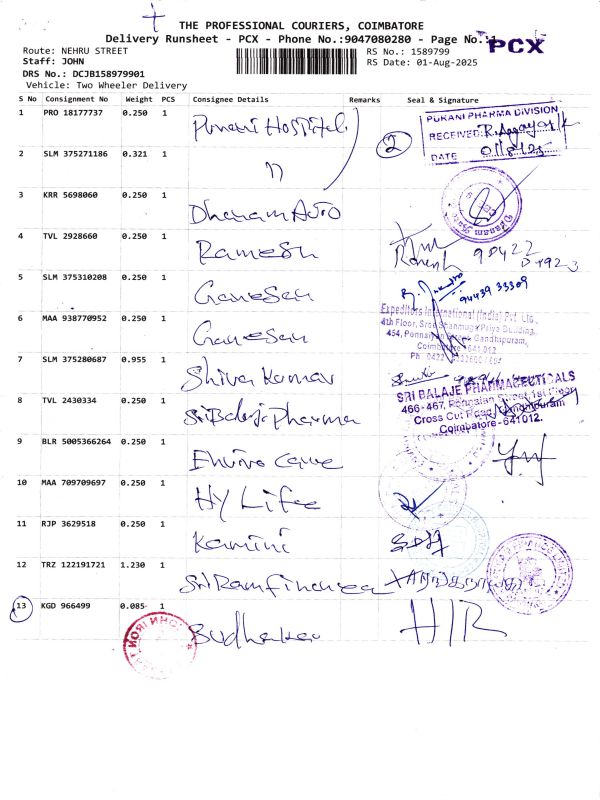 THE PROFESSIONAL COURIERS, COIMBATORE
Delivery Runsheet - PCX - Phone No.:9047080280 - Page No.:1
PCX
Route: NEHRU STREET
RS No.: 1589799
Staff: JOHN
RS Date: 01-Aug-2025
DRS No.: DCJB158979901
Vehicle: Two Wheeler Delivery
S No Consignment No Weight PCS Consignee Details Remarks Seal & Signature
1 PRO 18177737 0.250 1 Purani Hospital
PURANI PHARMA DIVISION
RECEIVED
DATE 01/8/25
2 SLM 375271186 0.321 1 11 2
3 KRR 5698060 0.250 1 Dhanam Auto
4 TVL 2928660 0.250 1 Ramesh
Ramesh 90422
5 SLM 375310208 0.250 1 Ganesan
94439 33309
6 MAA 938770952 0.250 1 Ganesan
Expeditors International (India) Pvt. Ltd.,
4th Floor,
Coimbatore
7 SLM 375280687 0.955 1 Shiva Kumar
SRI BALAJE PHARMACEUTICALS
8 TVL 2430334 0.250 1 Sri Balaji Pharma
466-467, Ponnaian Street, 1st Floor
Cross Cut Road, Gandhipuram
Coimbatore-641012.
9 BLR 5005366264 0.250 1 Enviro Care
10 MAA 709709697 0.250 1 Hy Life
11 RJP 3629518 0.250 1 Kamini
12 TRZ 122191721 1.230 1 Sri Ram Finance
13 KGD 966499 0.085 1 Sudhakar